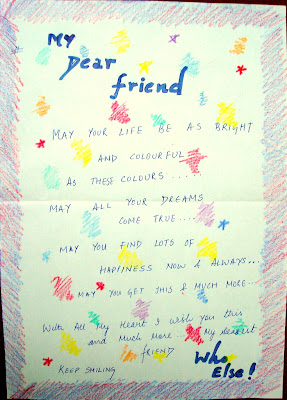 My
Dear
friend
MAY YOUR LIFE BE AS BRIGHT
AND COLOURFUL
AS THESE COLOURS .....
MAY ALL YOUR DREAMS
COME TRUE....
MAY YOU FIND LOTS OF
HAPPINESS NOW & ALWAYS...
MAY YOU GET THIS & MUCH MORE...
With All my Heart I wish you this
and Much More... My dearest
FRIEND
Who
Else!
KEEP SMILING